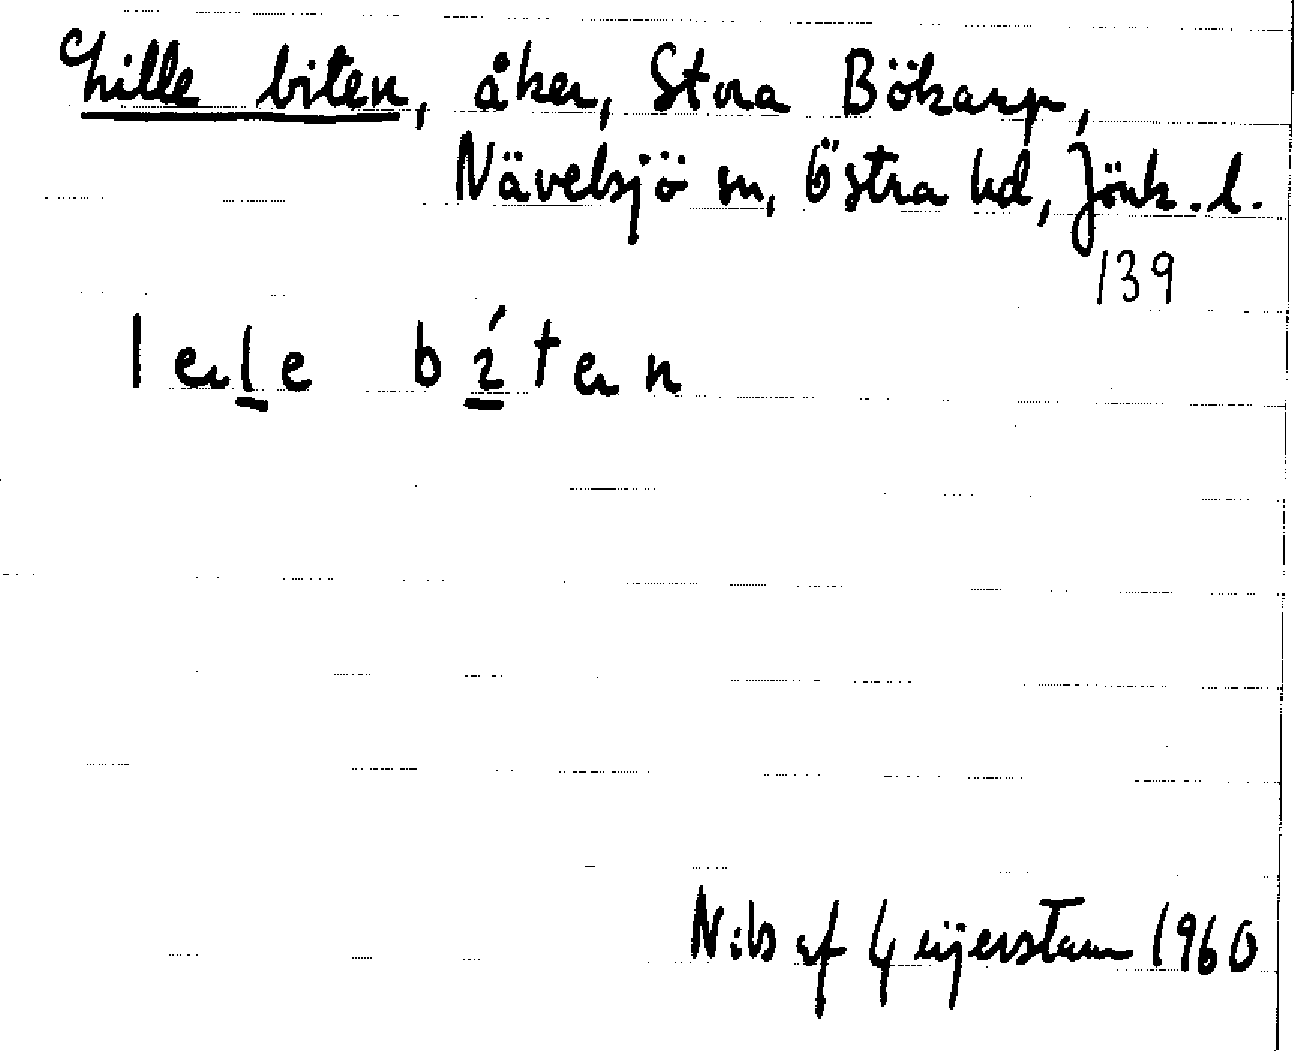 Lille biten, åker, Stora Bökarp,
Nävelsjö sn, Östra hd, Jönk. l.
139
lele bíten
Nils af Geijerstam 1960